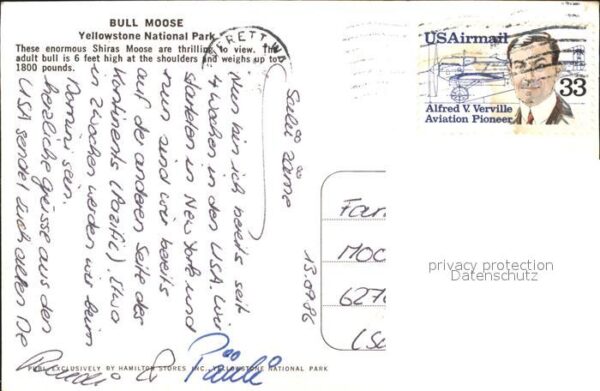 BULL MOOSE
Yellowstone National Park
These enormous Shiras Moose are thrilling to view. The
adult bull is 6 feet high at the shoulders and weighs up to
1800 pounds.
USAirmail
33
Alfred V. Verville
Aviation Pioneer
13.09.86
Salü
Nun bin ich bereits seit
4 Wochen in den USA. Wir
starteten in New York und
nun sind wir bereits
auf der anderen Seite des
Kontinents (Pazific). Etwa
in 2 Wochen werden wir beim
Domini sein.
Herzliche Grüsse aus den
USA sendet Euch allen
Päulä
Fam
MOO
627
PUBL. EXCLUSIVELY BY HAMILTON STORES INC., YELLOWSTONE NATIONAL PARK
privacy protection
Datenschutz